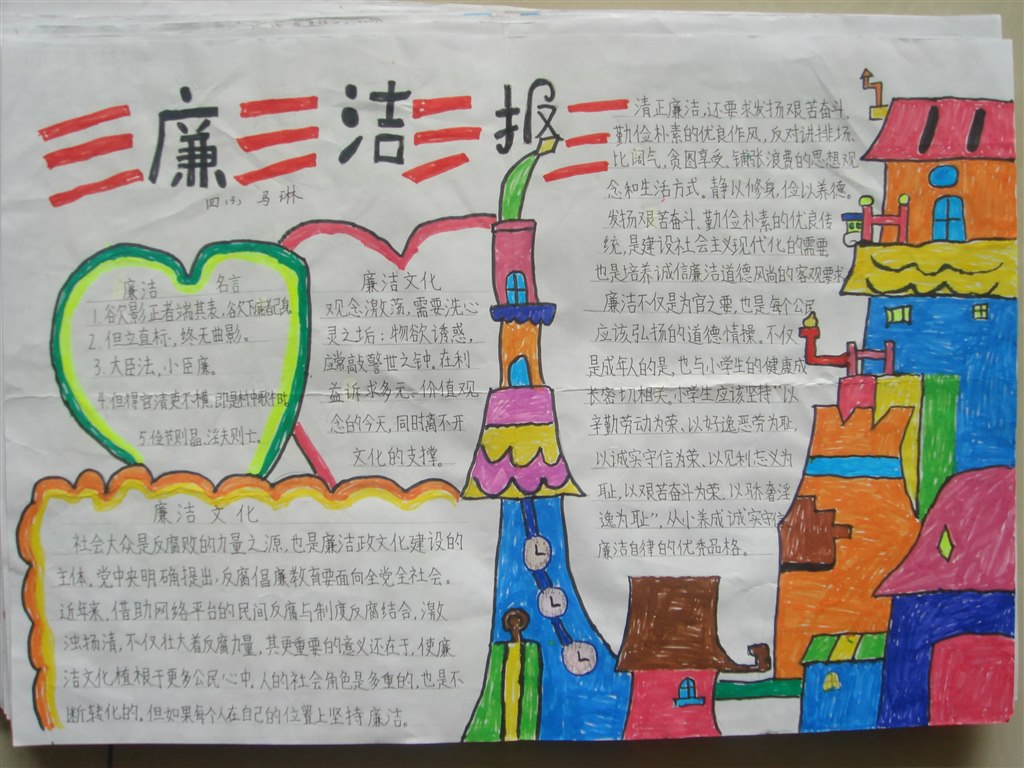 廉洁报
四(3) 马琳
廉洁 名言
1.谷欠影正者端其表,谷欠下廉者己身
2.但立直标,终无曲影。
3.大臣法,小臣廉。
4.但得官清吏不横,即是村中歌午时
5.俭节则昌,淫夫则亡。
廉洁文化
观念激荡,需要洗心
灵之垢:物欲诱惑,
应常敲警世之钟,在利
益诉求多元、价值观
念的今天,同时离不开
文化的支撑。
廉洁文化
社会大众是反腐败的力量之源,也是廉洁政文化建设的
主体。党中央明确提出,反腐倡廉教育要面向全党全社会。
近年来,借助网络平台的民间反腐与制度反腐结合,激
浊扬清,不仅壮大着反腐力量,其更重要的意义还在于,使廉
洁文化植根于更多公民心中。人的社会角色是多重的,也是不
断转化的,但如果每个人在自己的位置上坚持廉洁。
清正廉洁,还要求发扬艰苦奋斗,
勤俭朴素的优良作风,反对讲排场、
比阔气,贪图享受,铺张浪费的思想观
念和生活方式。静以修身,俭以养德。
发扬艰苦奋斗、勤俭朴素的优良传
统,是建设社会主义现代化的需要,
也是培养诚信廉洁道德风尚的客观要求
廉洁不仅是为官之要,也是每个公民
应该弘扬的道德情操。不仅
是成年人的是,也与小学生的健康成
长密切相关,小学生应该坚持“以
辛勤劳动为荣、以好逸恶劳为耻,
以诚实守信为荣、以见利忘义为
耻,以艰苦奋斗为荣、以骄奢淫
逸为耻”,从小养成诚实守信
廉洁自律的优秀品格。